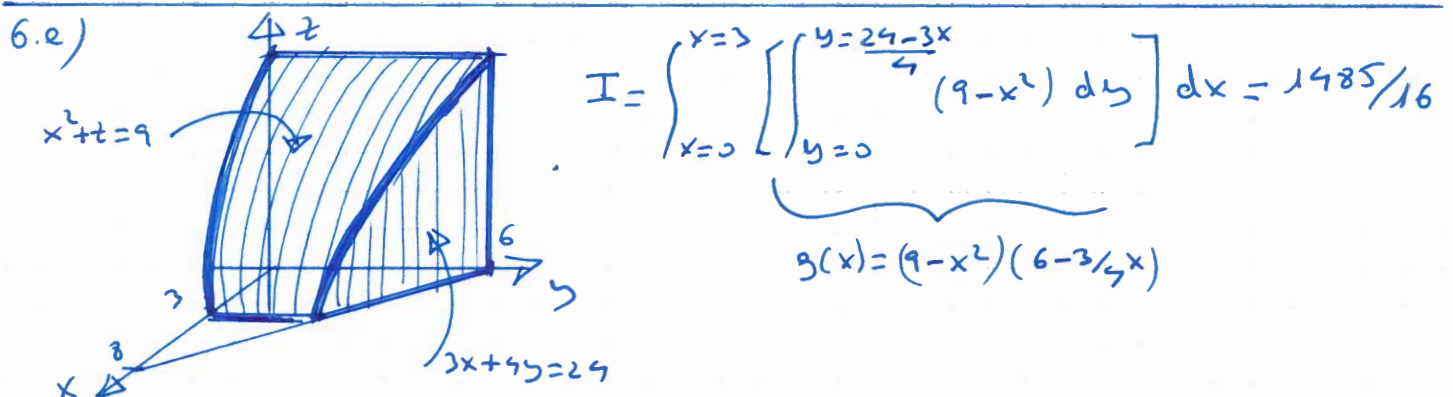 6.e)
z
x²+z=9
3
8
x
6
y
3x+4y=24
I = ∫_{x=0}^{x=3} [ ∫_{y=0}^{y=\frac{24-3x}{4}} (9-x²) dy ] dx = 1485/16
g(x)=(9-x²)(6-3/4x)